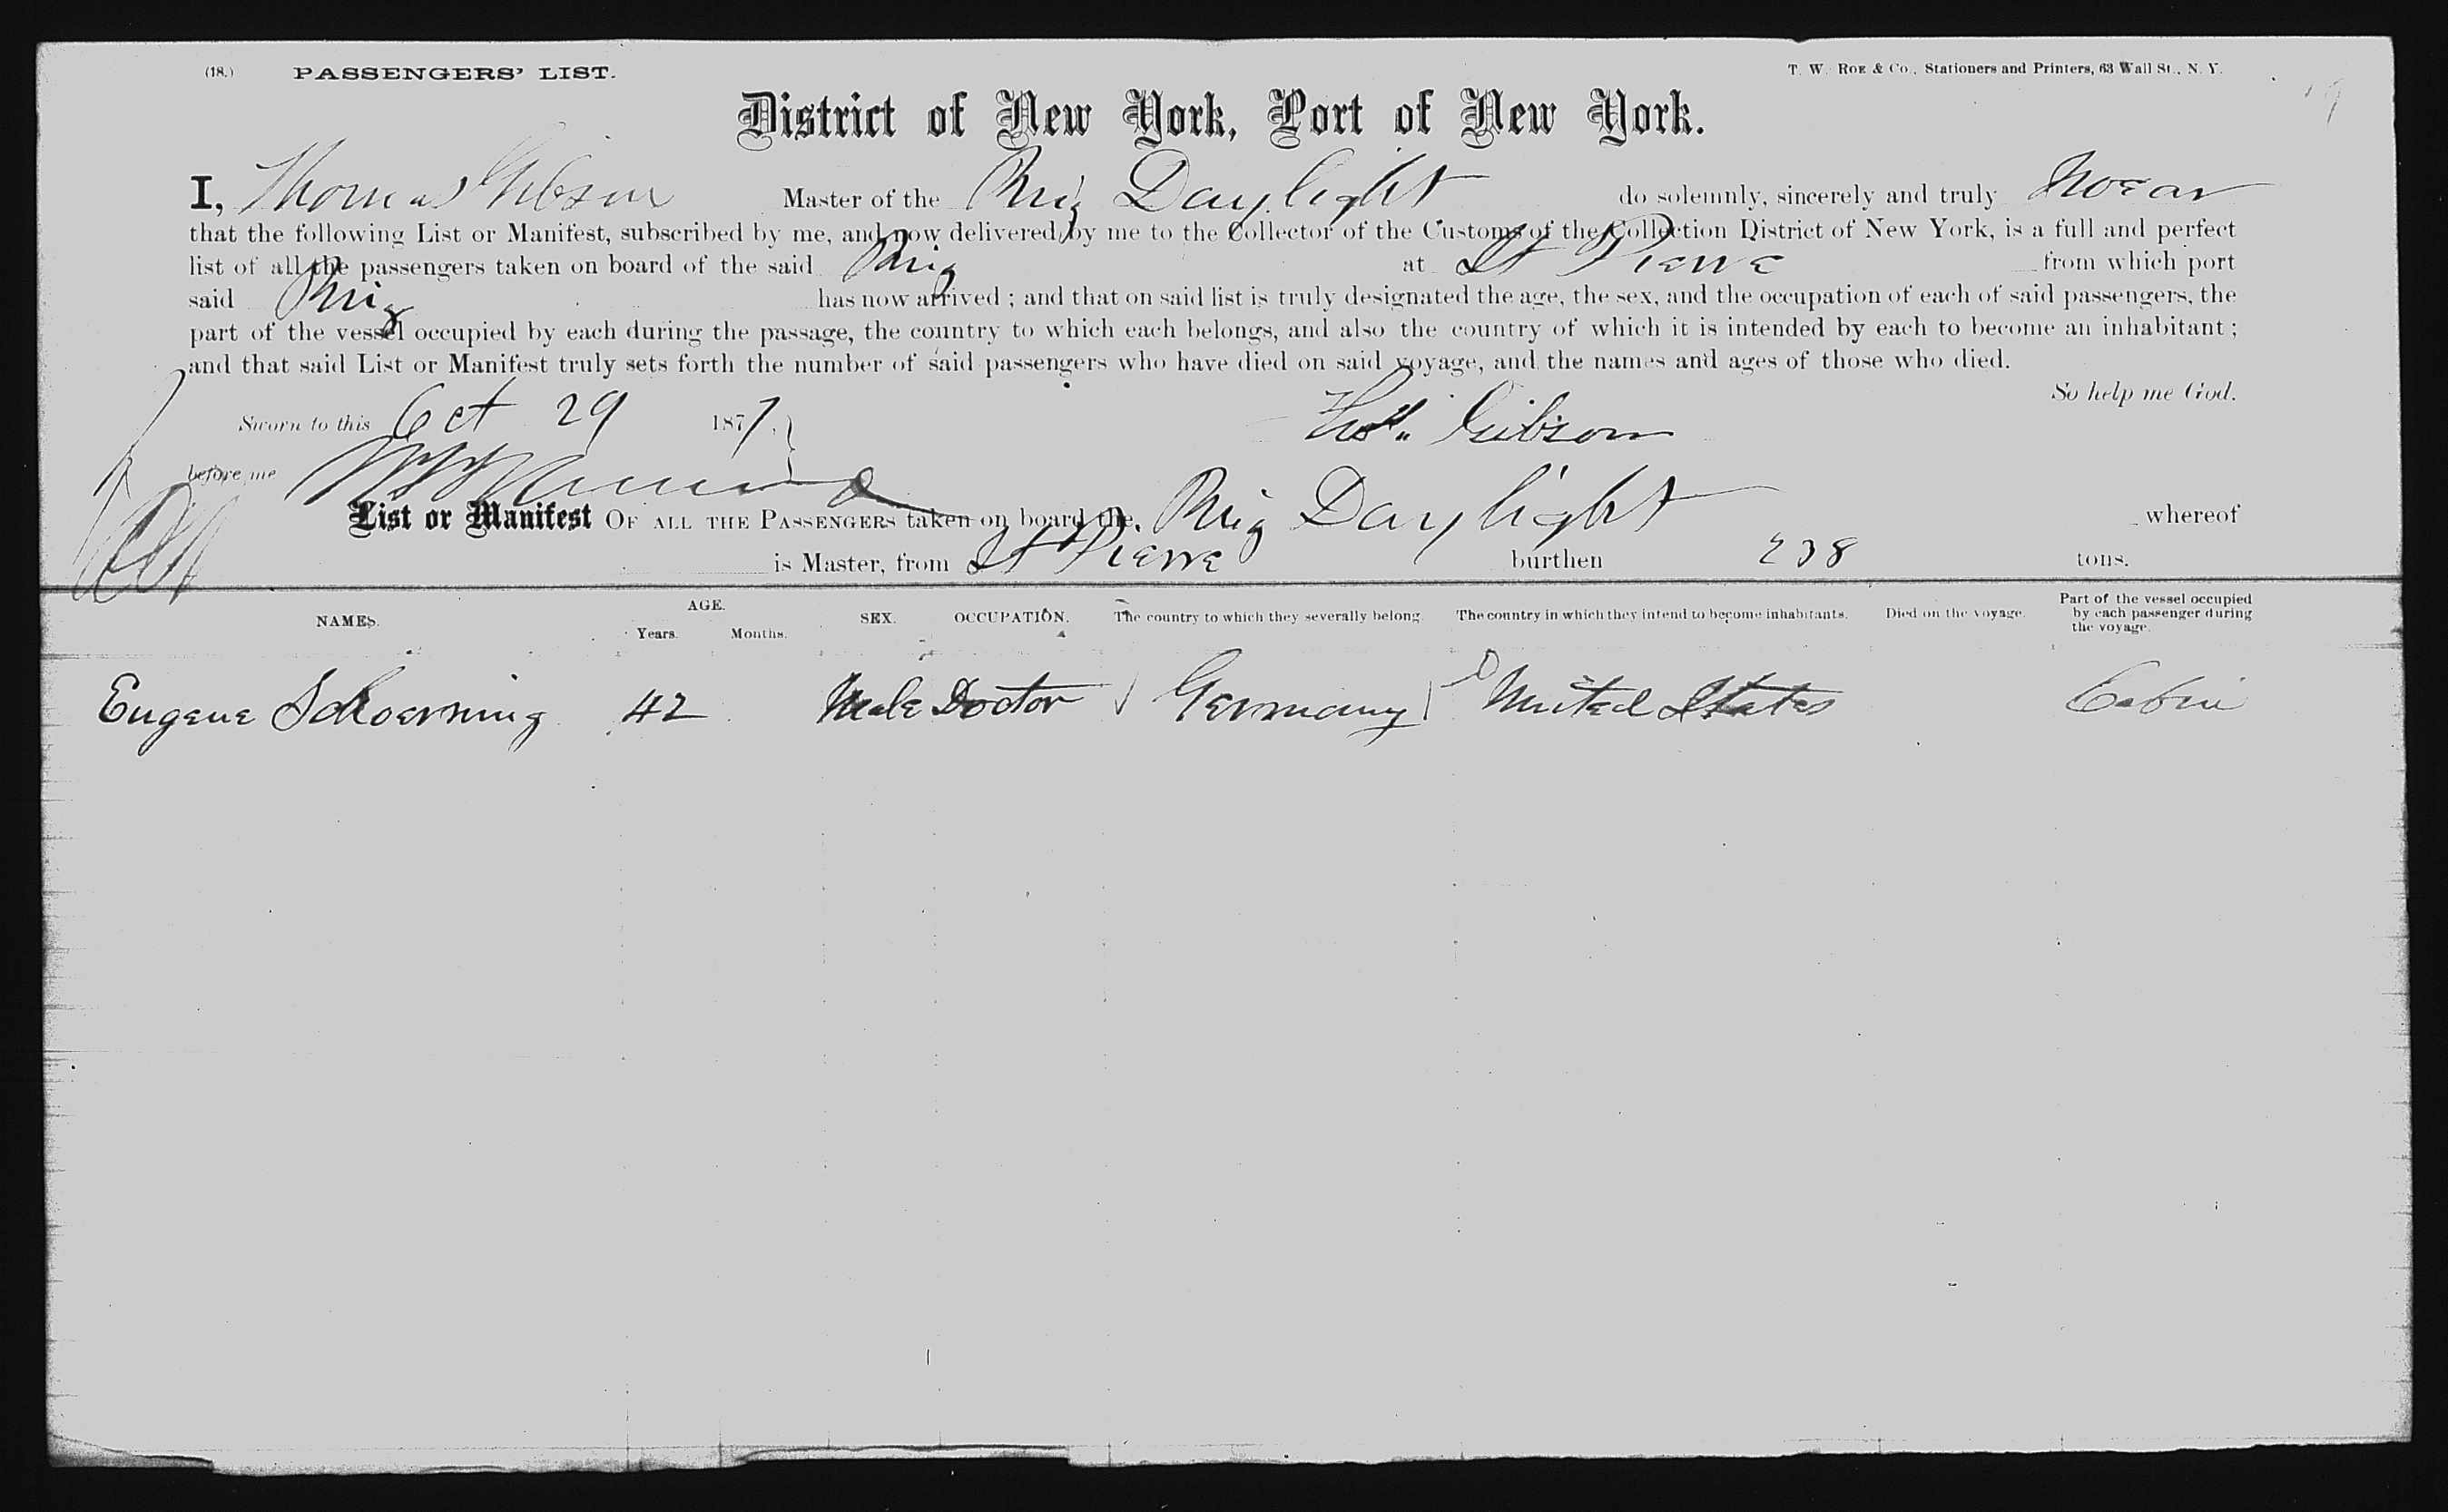 (18.) PASSENGERS' LIST. T. W. ROE & Co., Stationers and Printers, 63 Wall St., N. Y.
District of New York, Port of New York.
I, Thomas Gibson Master of the Brig Daylight do solemnly, sincerely and truly Swear
that the following List or Manifest, subscribed by me, and now delivered by me to the Collector of the Customs of the Collection District of New York, is a full and perfect
list of all the passengers taken on board of the said Brig at St Pierre from which port
said Brig has now arrived ; and that on said list is truly designated the age, the sex, and the occupation of each of said passengers, the
part of the vessel occupied by each during the passage, the country to which each belongs, and also the country of which it is intended by each to become an inhabitant ;
and that said List or Manifest truly sets forth the number of said passengers who have died on said voyage, and the names and ages of those who died.
So help me God.
Sworn to this Oct 29 1877. Thos. Gibson
before me
List or Manifest OF ALL THE PASSENGERS taken on board the Brig Daylight whereof
is Master, from St Pierre burthen 238 tons.
NAMES. AGE. Years. Months. SEX. OCCUPATION. The country to which they severally belong. The country in which they intend to become inhabitants. Died on the voyage. Part of the vessel occupied by each passenger during the voyage.
Eugene Schoerning 42 Male Doctor Germany United States Cabin